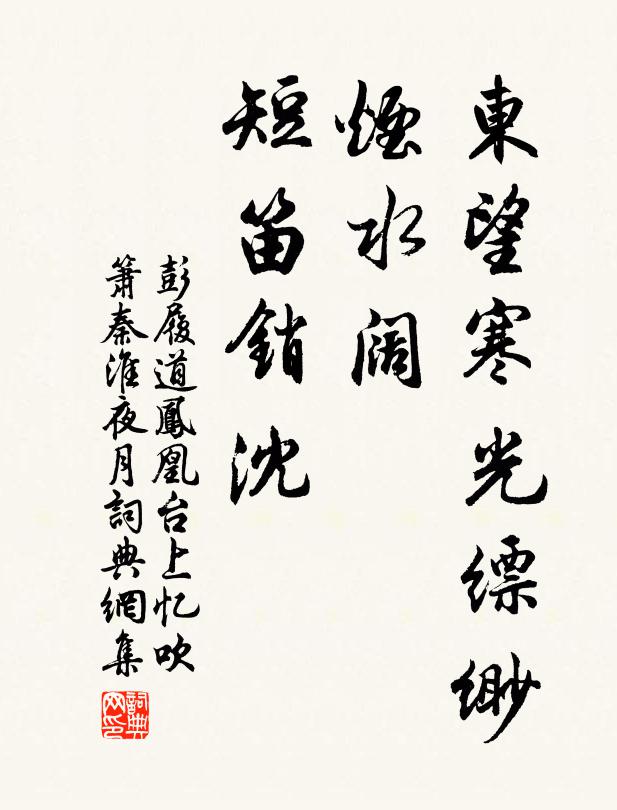 東望寒光缥缈
煙水阔
短笛銷沈
彭履道鳳凰台上忆吹
簫秦淮夜月詞典網集
詞典网印